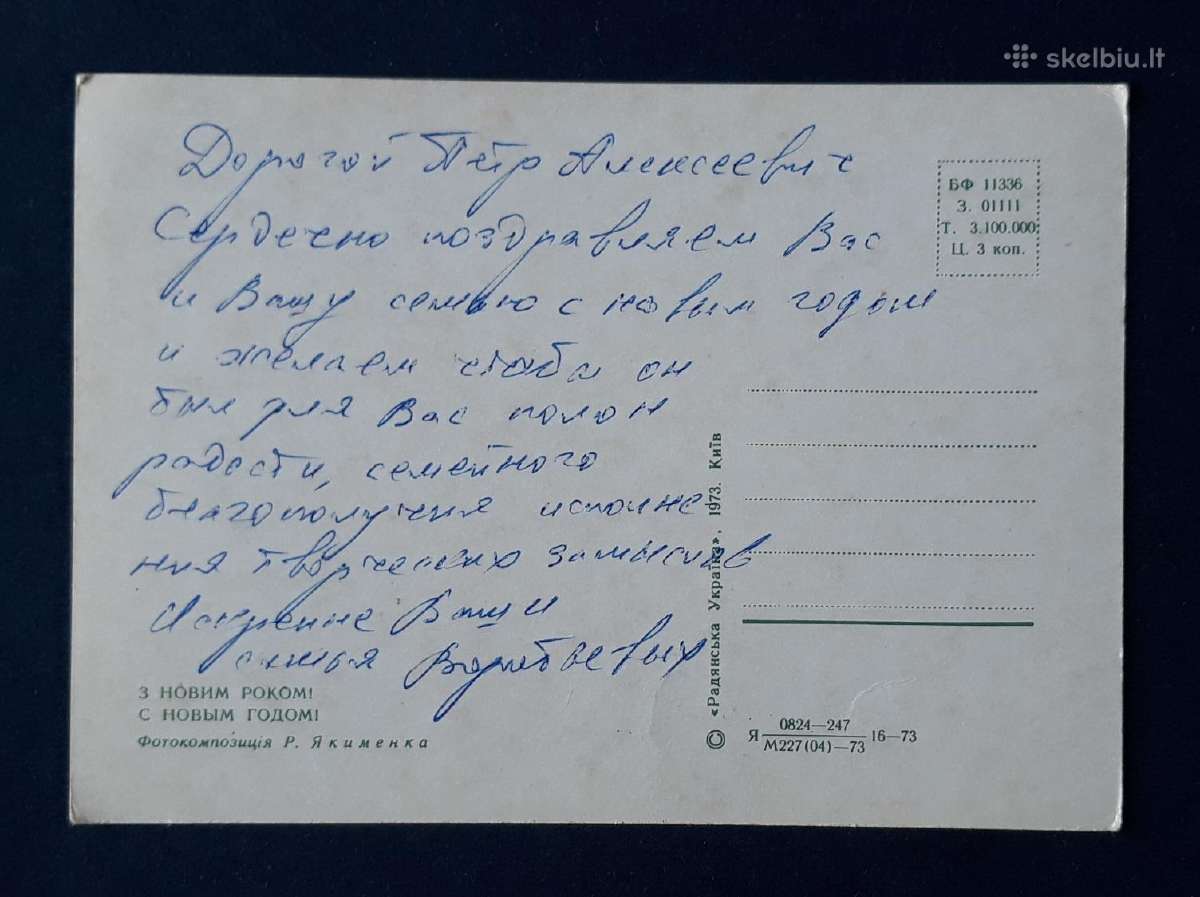 skelbiu.lt
Дорогой Пётр Алексеевич
Сердечно поздравляем Вас
и Вашу семью с новым годом
и желаем чтобы он
был для Вас полон
радости, семейного
благополучия исполне
ния творческих замыслов
Искренне Ваши
семья Воробьевых
БФ 11336
З. 01111
Т. 3.100.000
Ц. 3 коп.
© «Радянська Україна», 1973. Київ
З НОВИМ РОКОМ!
С НОВЫМ ГОДОМ!
Фотокомпозиція Р. Якименка
Я 0824—247 16—73
М227(04)—73